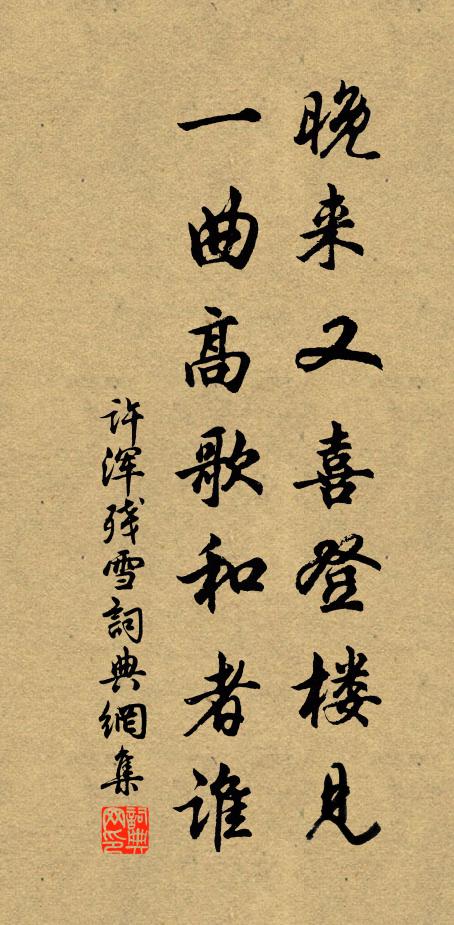 晚来又喜登楼见
一曲高歌和者谁
许浑残雪詞典網集
詞典网印